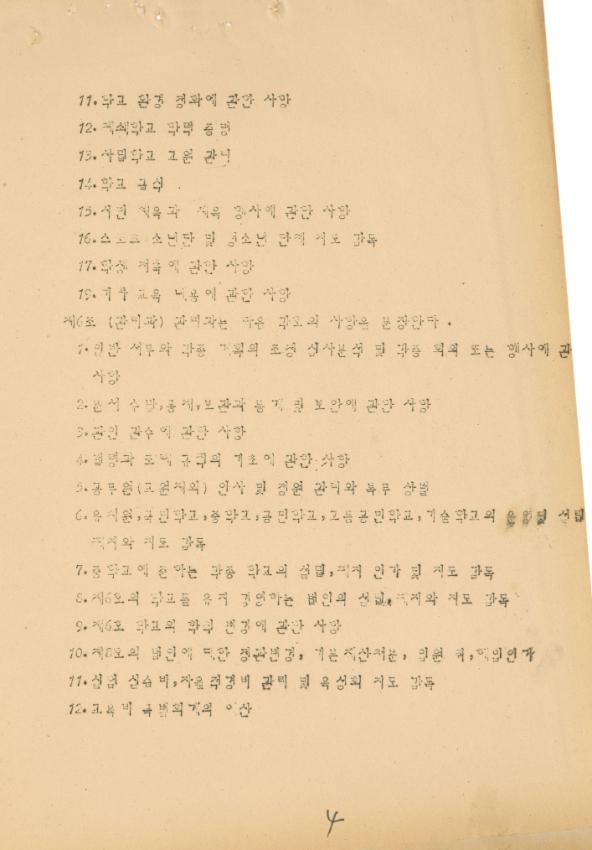 11. 학교 환경 정화에 관한 사항
12. 폐쇄학교 학력 증명
13. 사립학교 교원 관리
14. 학교 급식
15. 시민 체육과 체육 행사에 관한 사항
16. 스포츠 소년단 및 청소년 단체 지도 감독
17. 학생 저축에 관한 사항
19. 기타 교육 내용에 관한 사항
제6조 (관리과) 관리과는 다음 각호의 사항을 분장한다.
1. 일반 서무와 각종 계획의 조정 심사분석 및 각종 회의 또는 행사에 관
사항
2. 문서 수발, 통제, 보관과 통계 및 보안에 관한 사항
3. 관인 관수에 관한 사항
4. 법령과 교육 규칙의 기초에 관한 사항
5. 공무원(교원제외) 인사 및 정원 관리와 복무 상벌
6. 유치원, 국민학교, 중학교, 공민학교, 고등공민학교, 기술학교의 운영및 설립
폐지와 지도 감독
7. 중학교에 준하는 각종 학교의 설립, 폐지 인가 및 지도 감독
8. 제6호의 학교를 유지 경영하는 법인의 설립, 폐지와 지도 감독
9. 제6호 학교의 학칙 변경에 관한 사항
10. 제8호의 법인에 대한 정관변경, 기본재산처분, 임원 취, 해임인가
11. 실험 실습비, 자율적경비 관리 및 육성회 지도 감독
12. 교육비 특별회계의 예산
4